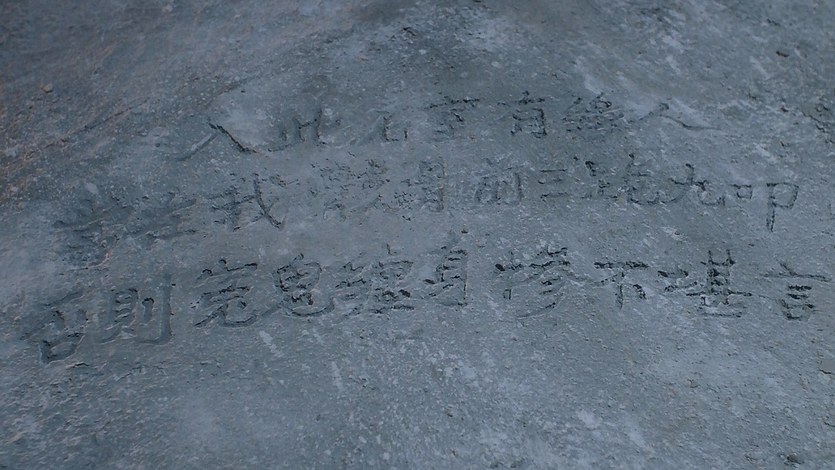 入此石室有緣人
當在我身前三跪九叩
否則冤鬼纏身慘不堪言